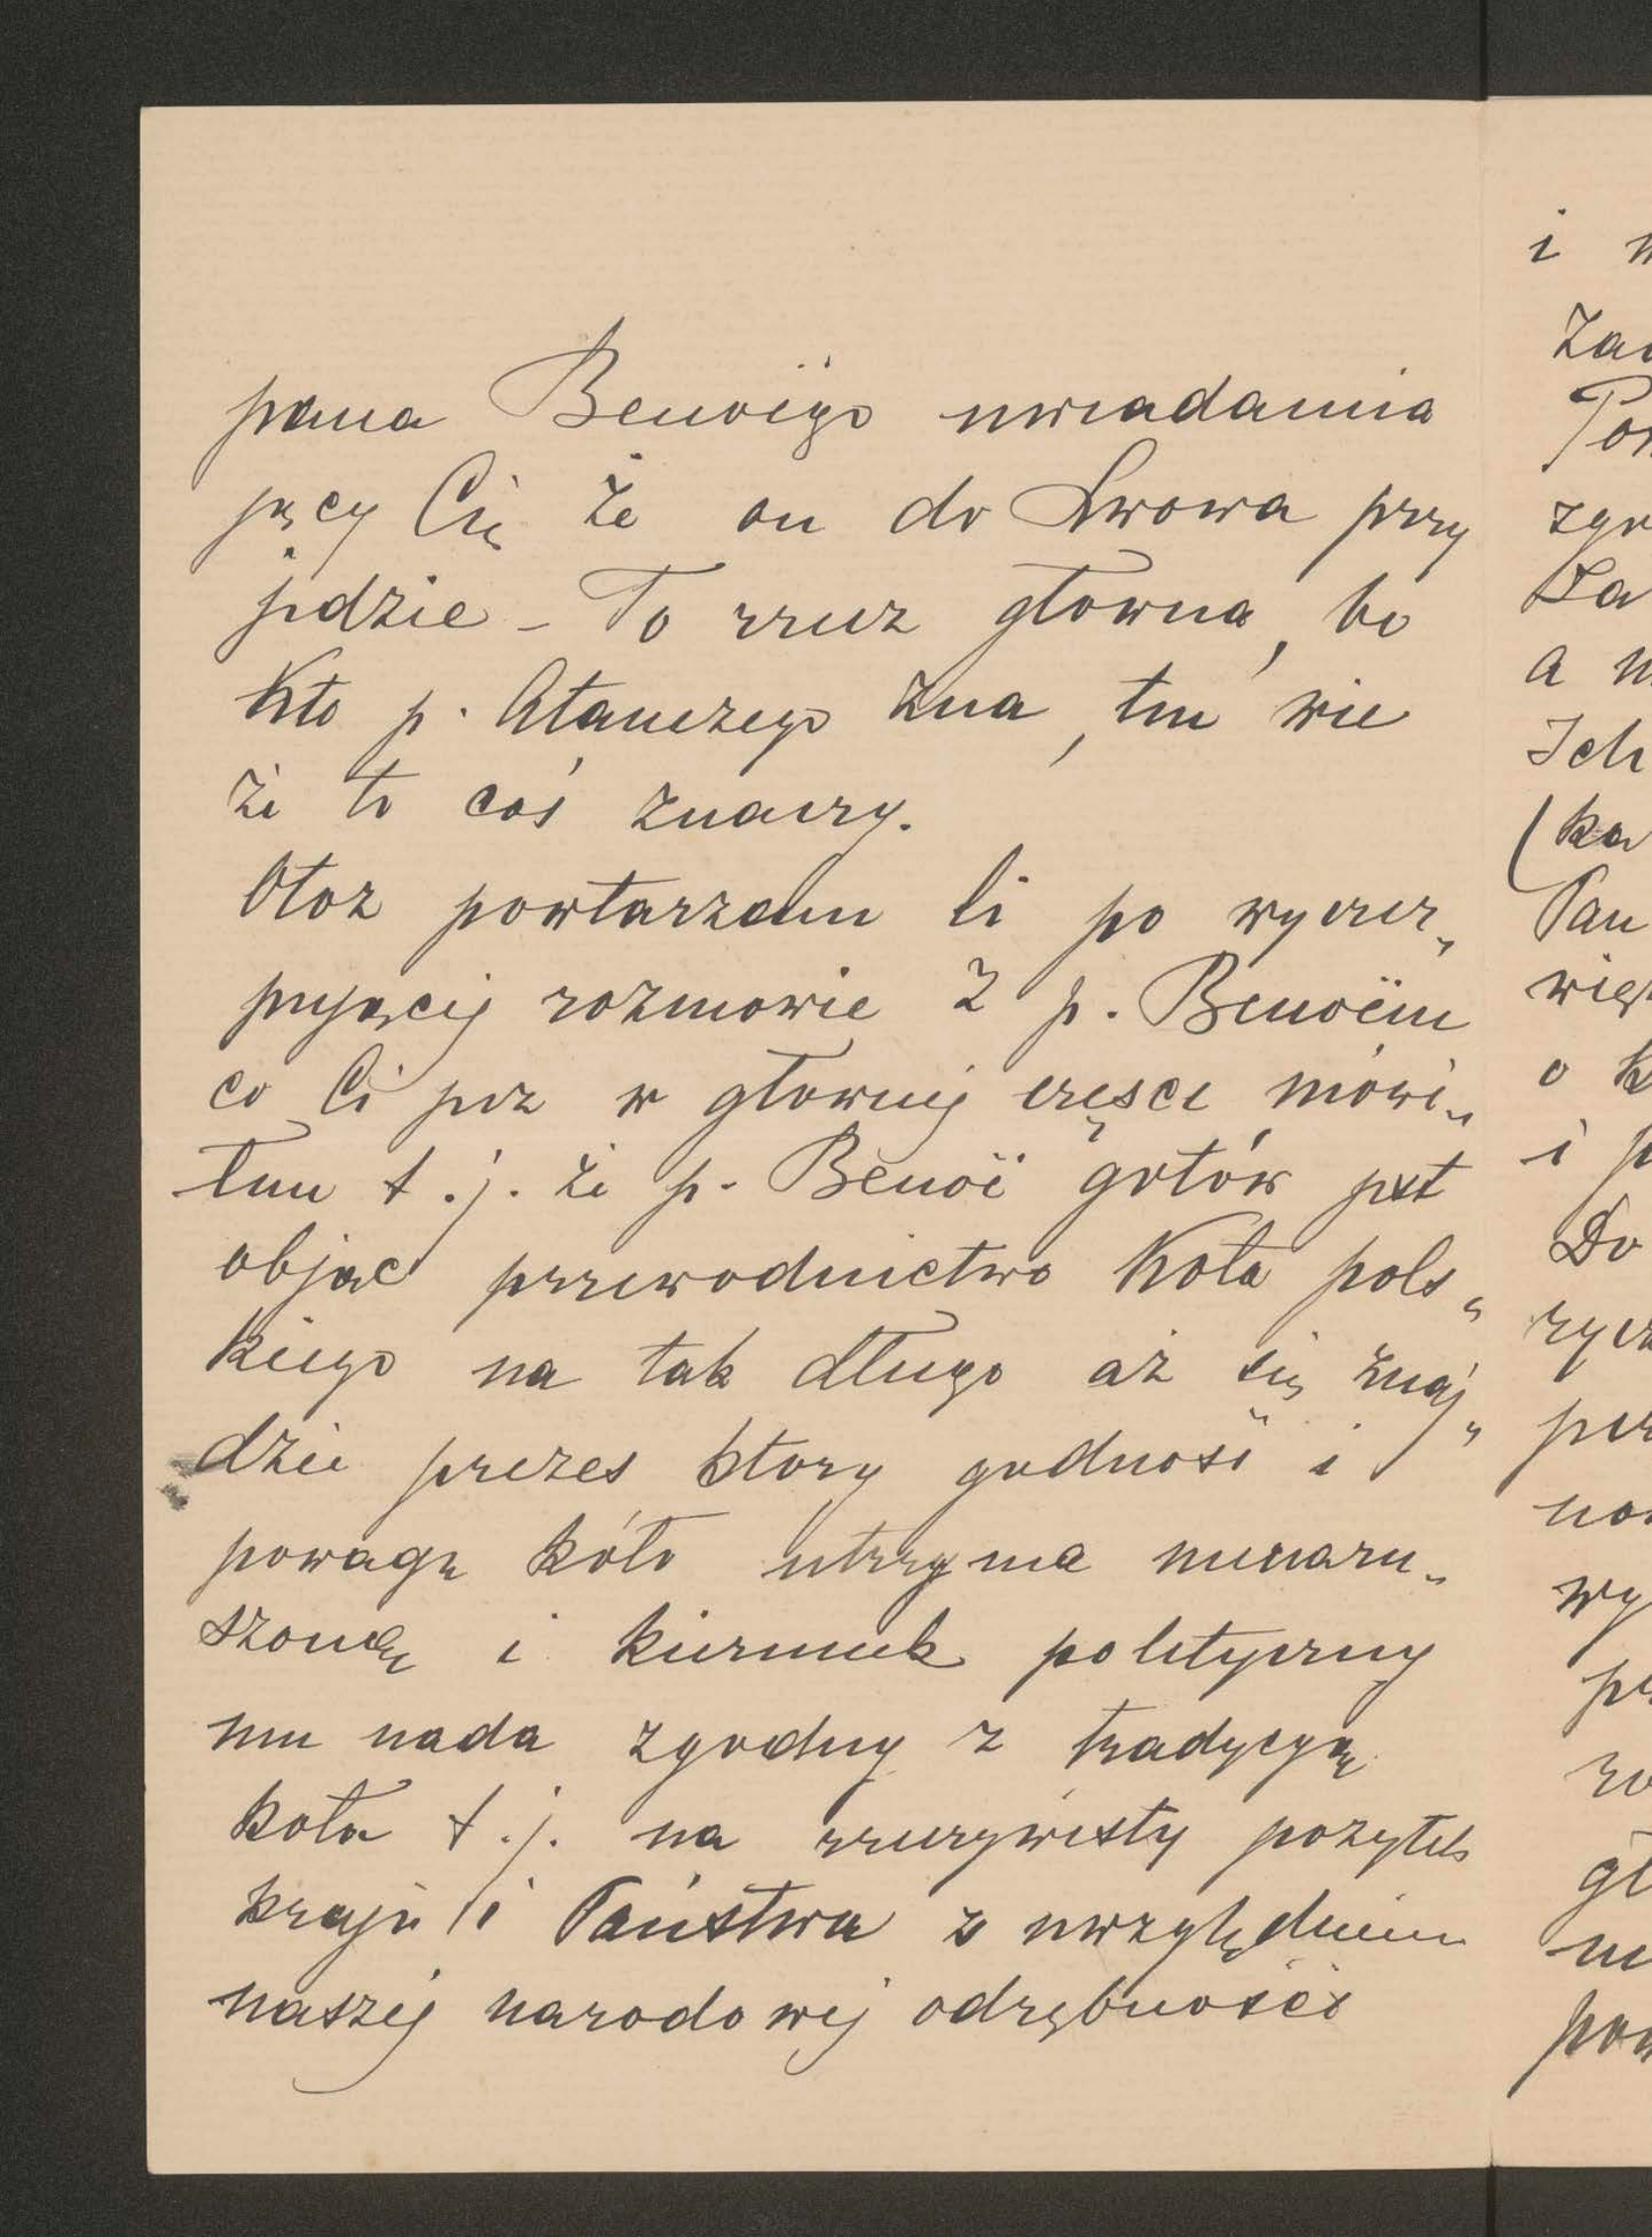 pana Benoëgo uwiadamia
jący Cię że on do Lwowa przy
jedzie – To rzecz głowna, bo
Kto p. Atanezego zna, ten wie
że to coś znaczy.
Otoz powtarzam Ci po wyczer„
pującej rozmowie z p. Benoëm
co Ci juz w głownej częsci mówi„
łem t.j. że p. Benoë gotów jest
objąć przewodnictwo Koła pols„
kiego na tak długo aż się znaj„
dzie prezes ktory godność i
powagę kóło utrzyma nienaru„
szoną i kierunek polityczny
mu nada zgodny z tradycyą
koła t.j. na rzeczywisty pozytek
kraju i Państwa z uwzględnieniem
naszej narodowej odrębności
i
Za
Po
zgr
Za
a
Ich
(ka
Pan
więk
o k
i p
Do
rycz
per
wy